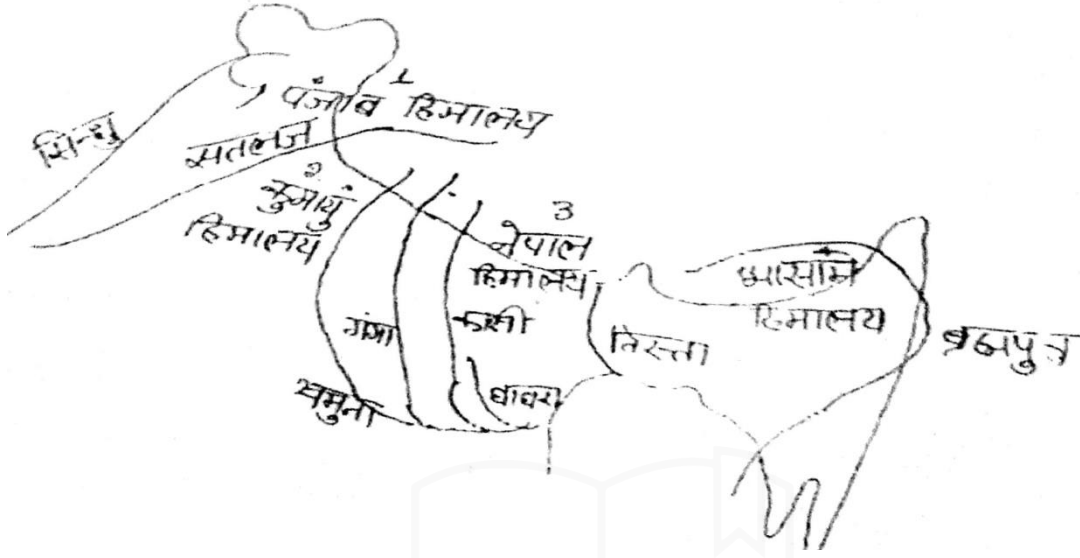 1
पंजाब हिमालय
सिन्धु
सतलज
2
कुमायुं
हिमालय
3
नेपाल
हिमालय
4
आसाम
हिमालय
गंगा
काली
तिस्ता
ब्रह्मपुत्र
यमुना
घाघरा